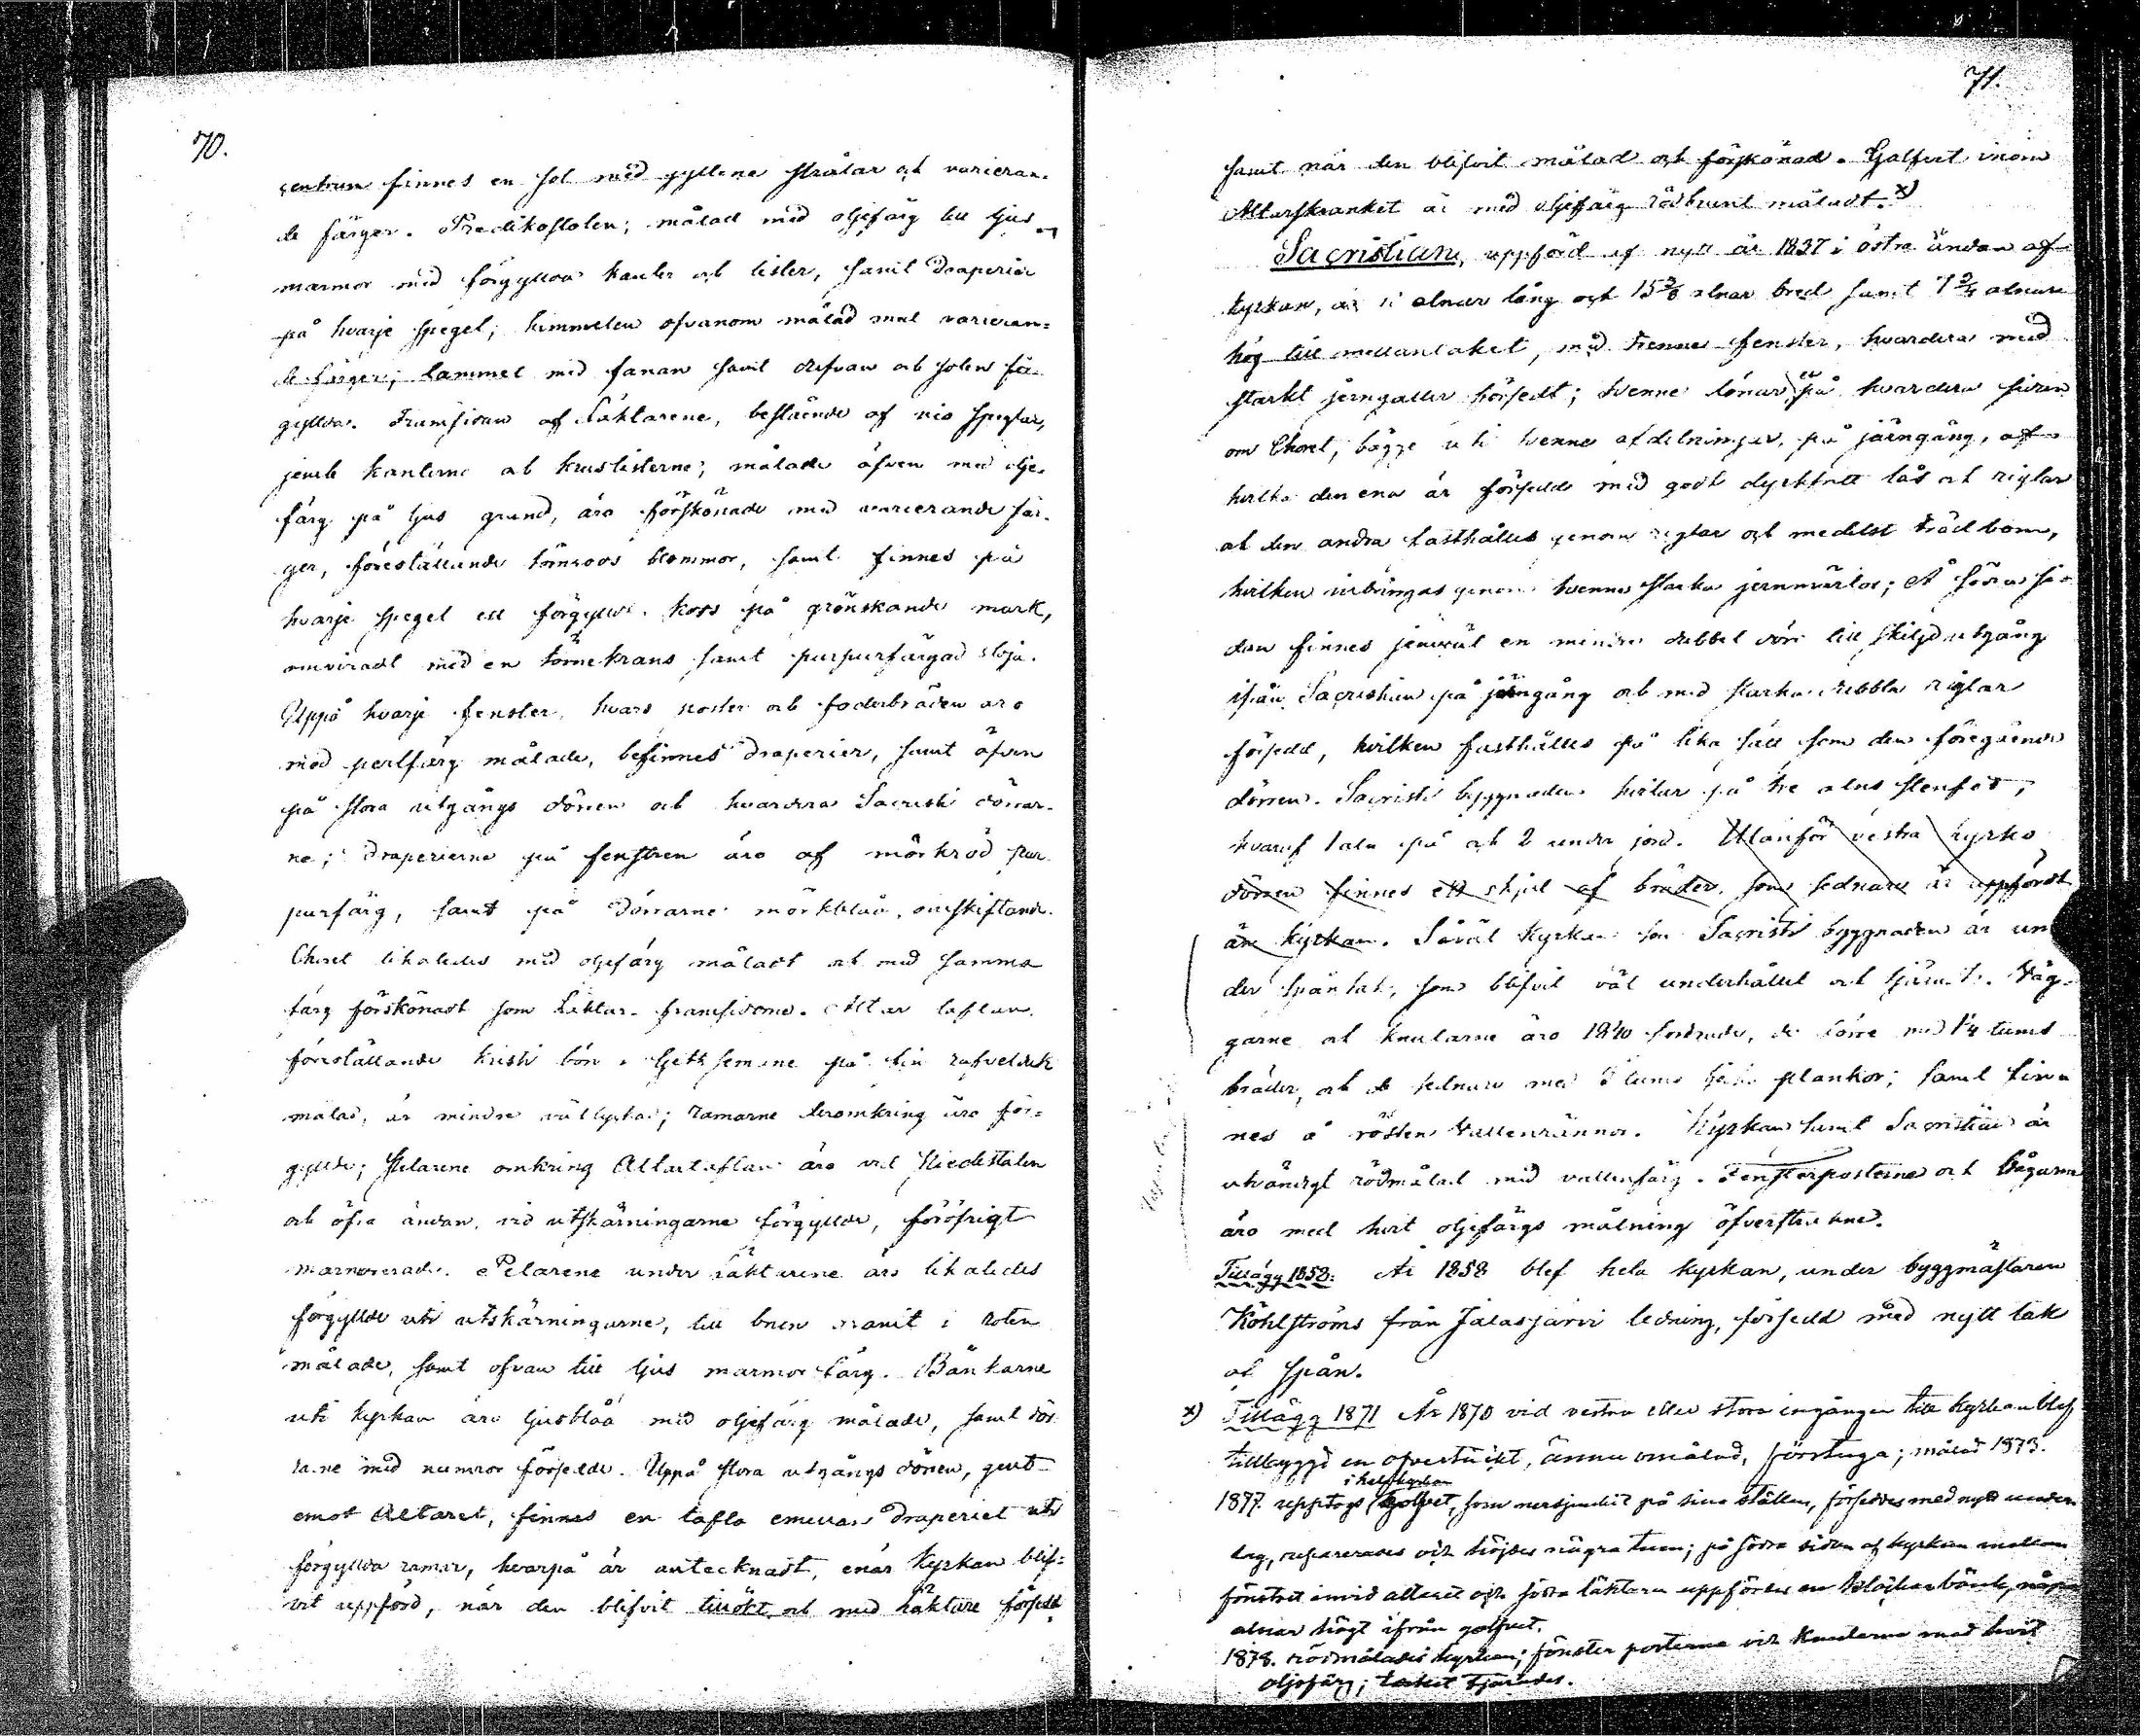 70.
centrum finnes en sol med gyllene strålar och varieran-
de färger. Predikostolen; målad med oljefärg till ljus
marmor med förgyllda kanter och lister, samt draperier
på hvarje spegel; himmelen ofvanom målad med varieran-
de färger; lammet med fanan samt dufvan och solen för-
gyllda. Framsidan af Läktarene, bestående af nio speglar,
jemte kanterne och kruslisterne; målade äfven med olje-
färg på ljus grund, äro förskönade med varierande fär-
ger, föreställande törnroos blommor, samt finnes på
hvarje spegel ett förgylldt kors på grönskande mark,
omviradt med en törnekrans samt purpurfärgad slöja.
Uppå hvarje fenster, hvars poster och foderbräden äro
med perlfärg målade, befinnes draperier, samt äfven
på stora utgångs dörren och hvardera Sacristi dörrar-
ne; draperierne på fenstren äro af mörkröd pur-
purfärg, samt på dörrarne mörkblåa, omskiftande.
Choret likaledes med oljefärg måladt och med samma
färg förskönadt som Läktar-framsidorne. Altar taflan,
föreställande Kristi bön i Gethsemane på fin rafvelduk
målad, är mindre väl lyckad; ramarne deromkring äro för-
gyllde; pelarene omkring Altartaflan äro vid piedestalen
och öfra ändan, vid utskärningarne förgyllde, föröfrigt
marmorerade. Pelarene under läktarene äro likaledes
förgyllde uti utskärningarne, till brun granit i roten
målade, samt ofvan till ljus marmor färg. Bänkarne
uti kyrkan äro ljusblåa med oljefärg målade, samt dör-
rarne med numror försedde. Uppå stora utgångs dörren, gent-
emot Altaret, finnes en tafla emellan draperiet uti
förgyllda ramar, hvarpå är antecknadt, enär Kyrkan blif-
vit uppförd, när den blifvit tillökt och med läktare försedd
71.
samt när den blifvit målad och förskönad. Golfvet inom
Altarskranket är med oljefärg rödbrunt måladt. x)
Sacristian, uppförd af nytt år 1837 i östra ändan af
kyrkan, är 11 alnar lång och 15 3/8 alnar bred samt 7 3/4 alnar
hög till mellantaket, med trenne fenster, hvardera med
starkt jerngaller försedt; tvenne dörrar, en på hvardera sidan
om Choret, bägge uti tvenne afdelningar, på järngång, af
hvilka den ena är försedd med godt dyrkfritt lås och riglar
och den andra fasthålles genom riglar och medelst träd bom,
hvilken inbringas genom tvenne starka jernmärlor; Å södra si-
dan finnes jemväl en mindre dubbel dörr till skiljd utgång
ifrån Sacristian på järngång och med starka dubbla riglar
försedd, hvilken fasthålles på lika sätt som den föregående
dörren. Sacristi byggnaden hvilar på tre alns stenfot,
hvaraf 1 aln på och 2 under jord. Utanför vestra kyrko
dörren finnes ett skjul af bräder, som sednare är uppfördt
än kyrkan. Såväl Kyrkan som Sacristi byggnaden är un
der spåntak, som blifvit väl underhållet och tjäradt. Väg-
garne och knutarne äro 1840 fodrade, de förre med 1 1/4 tums
bräder, och de sednare med 2 tums plankor; samt fin-
nes å rösten Vattenrännor. Kyrkan samt Sacristian är
utvändigt rödmålad med vattenfärg. Fensterposterne och bågarne
äro med hvit oljefärgs målning öfverstrukne.
Tillägg 1858: År 1858 blef hela kyrkan, under byggmästaren
Köhlströms från Jalasjärvi ledning, försedd med nytt tak
af spån.
x) Tillägg 1871 År 1870 vid vestra eller stora ingången till kyrkan blef
tillbyggd en ofvertäckt, ännu omålad, förstuga; målad 1873.
i hela kyrkan
1877. upptogs golfvet, som nersjunkit på sina ställen, försedes med nytt under-
lag, reparerades och höjdes några tum; på södra sidan af kyrkan mellan
fönstret invid altaret och södra läktaren uppfördes en klockarbänk, några
alnar högt ifrån golfvet.
1878. rödmålades kyrkan; fönster posterna och knutarna med hvit
oljefärg; taket tjärades.